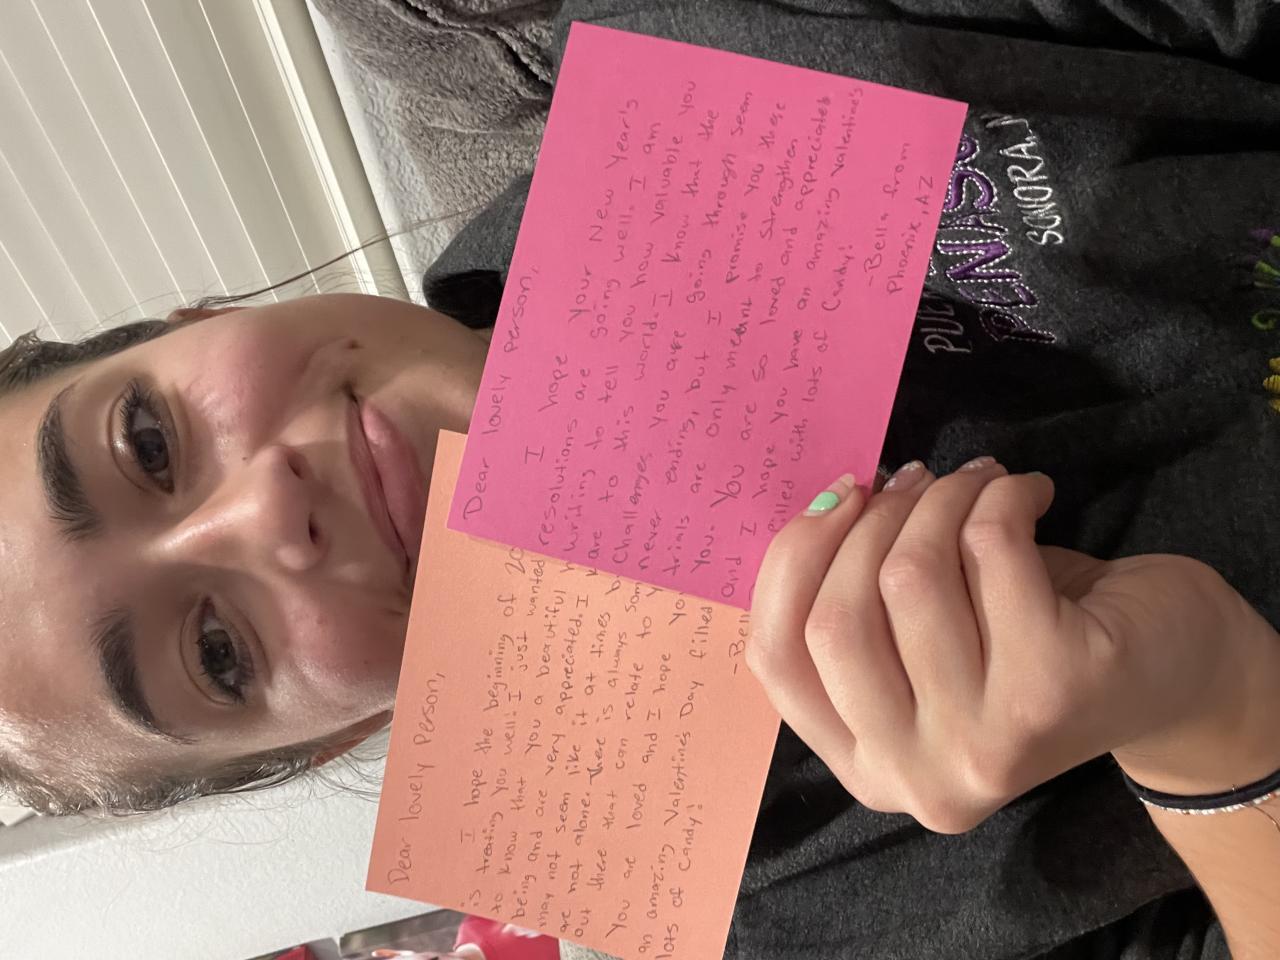 Dear lovely person,
I hope your New Year's
resolutions are going well. I am
writing to tell you how valuable you
are to this world. I know that the
challenges you are going through seem
never ending, but I promise you these
trials are only meant to strengthen
you. You are so loved and appreciated
and I hope you have an amazing Valentine's
filled with lots of candy!
-Bella from
Phoenix, AZ
Dear lovely person,
I hope the beginning of 20
is treating you well. I just wanted
to know that you a beautiful h
being and are very appreciated. I k
may not seem like it at times b
are not alone. There is always som
out there that can relate to y
You are loved and I hope yo
an amazing Valentine's Day filled
lots of candy!
-Bell
PEÑASC
SONORA, M